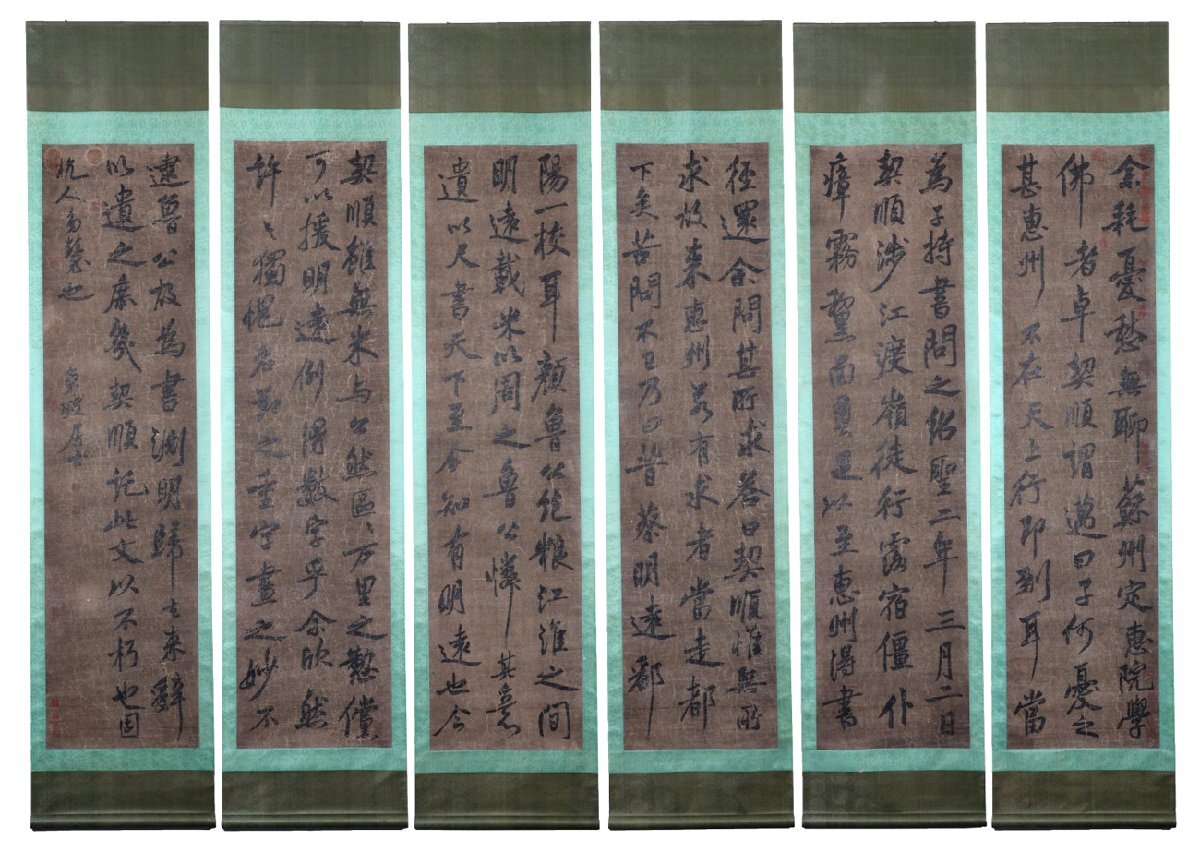 余耗憂愁無聊蘇州定惠院學
佛者卓契順謂邁曰子何憂之
甚惠州不在天上行即到耳當
為子持書問之紹聖二年三月二日
契順涉江渡嶺徒行露宿僵仆
瘴霧黧面繭足以至惠州得書
徑還余問其所求答曰契順惟無所
求故來惠州若有求者當走都
下矣苦問不已乃曰昔蔡明遠鄱
陽一校耳顏魯公絕粮江淮之間
明遠載米以周之魯公憐其意
遺以尺書天下至今知有明遠也今
契順雖無米与公然區〻万里之懃儻
可以援明遠例得數字乎余欣然
許之獨愧名節之重字畫之妙不
逮魯公故為書淵明歸去来辭
以遺之庶幾契順託此文以不朽也因
人也
東坡居士